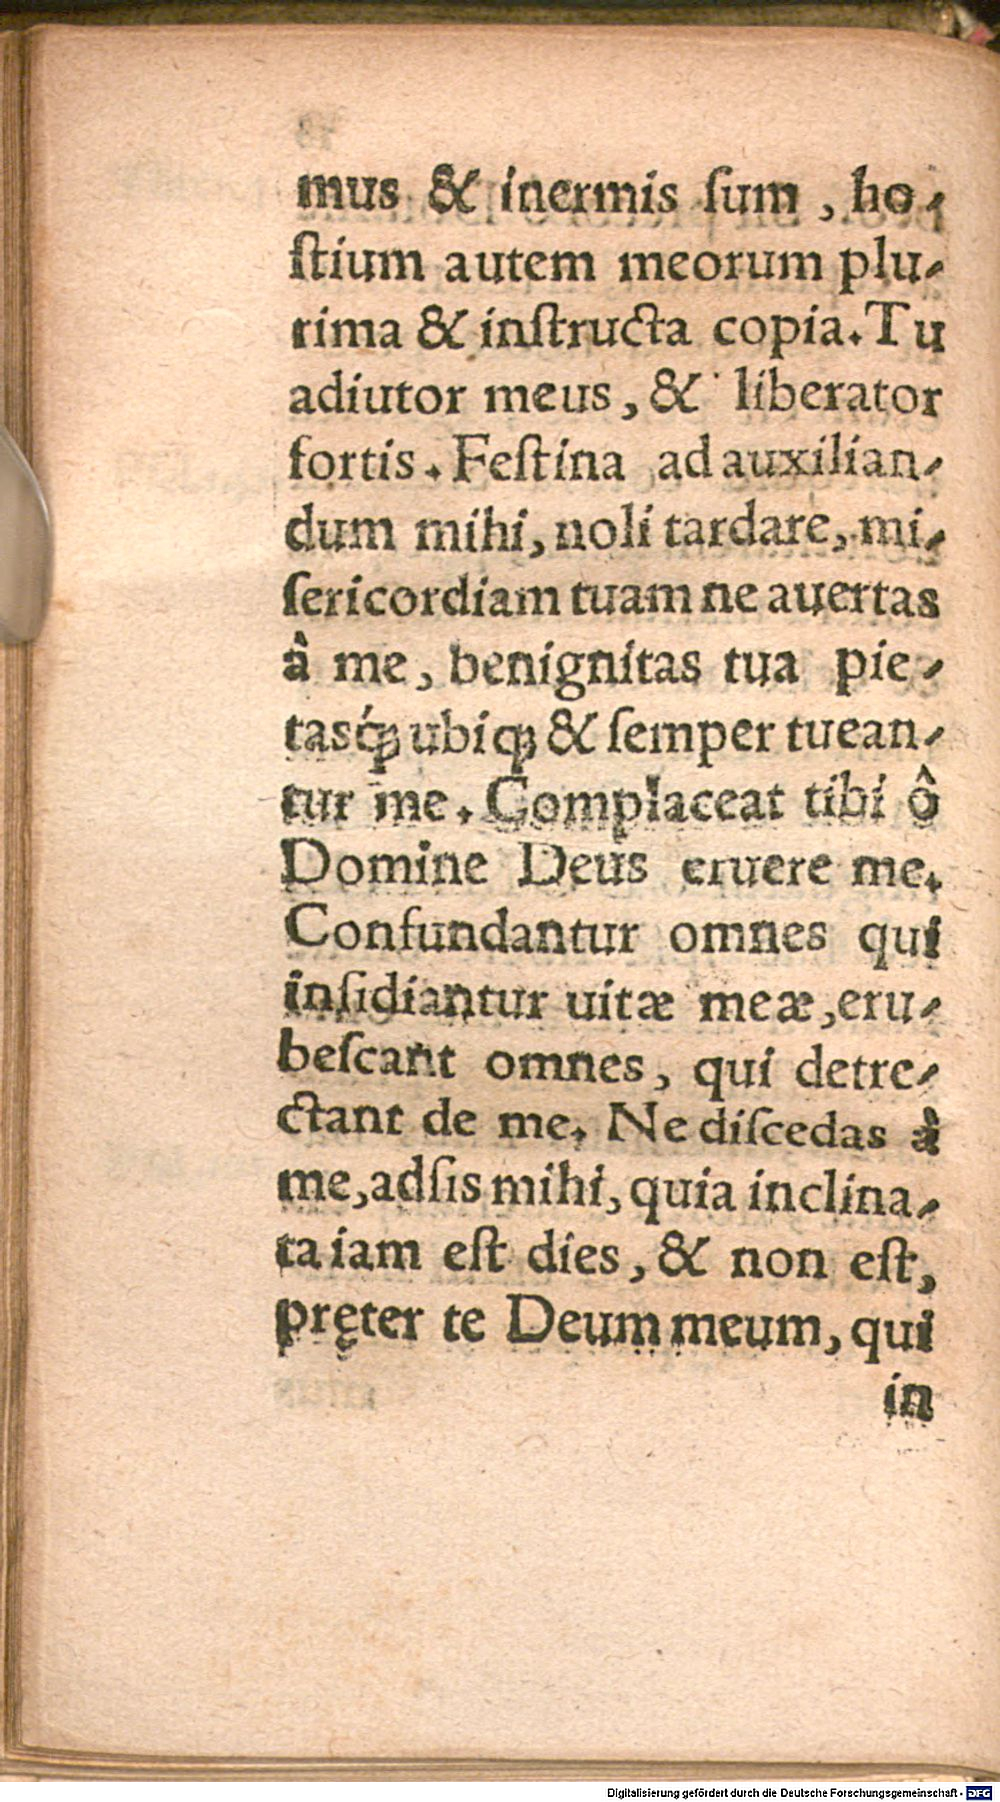 mus & inermis ſum, ho-
ſtium autem meorum plu-
rima & inſtructa copia. Tu
adiutor meus, & liberator
fortis. Feſtina ad auxilian-
dum mihi, noli tardare, mi-
ſericordiam tuam ne auertas
â me, benignitas tua pie-
tasq́ꝫ ubiqꝫ & ſemper tuean-
tur me. Complaceat tibi ô
Domine Deus eruere me.
Confundantur omnes qui
inſidiantur uitæ meæ, eru-
beſcant omnes, qui detre-
ctant de me. Ne diſcedas à
me, adſis mihi, quia inclina-
ta iam eſt dies, & non eſt,
pręter te Deum meum, qui
in
Digitalisierung gefördert durch die Deutsche Forschungsgemeinschaft - DFG